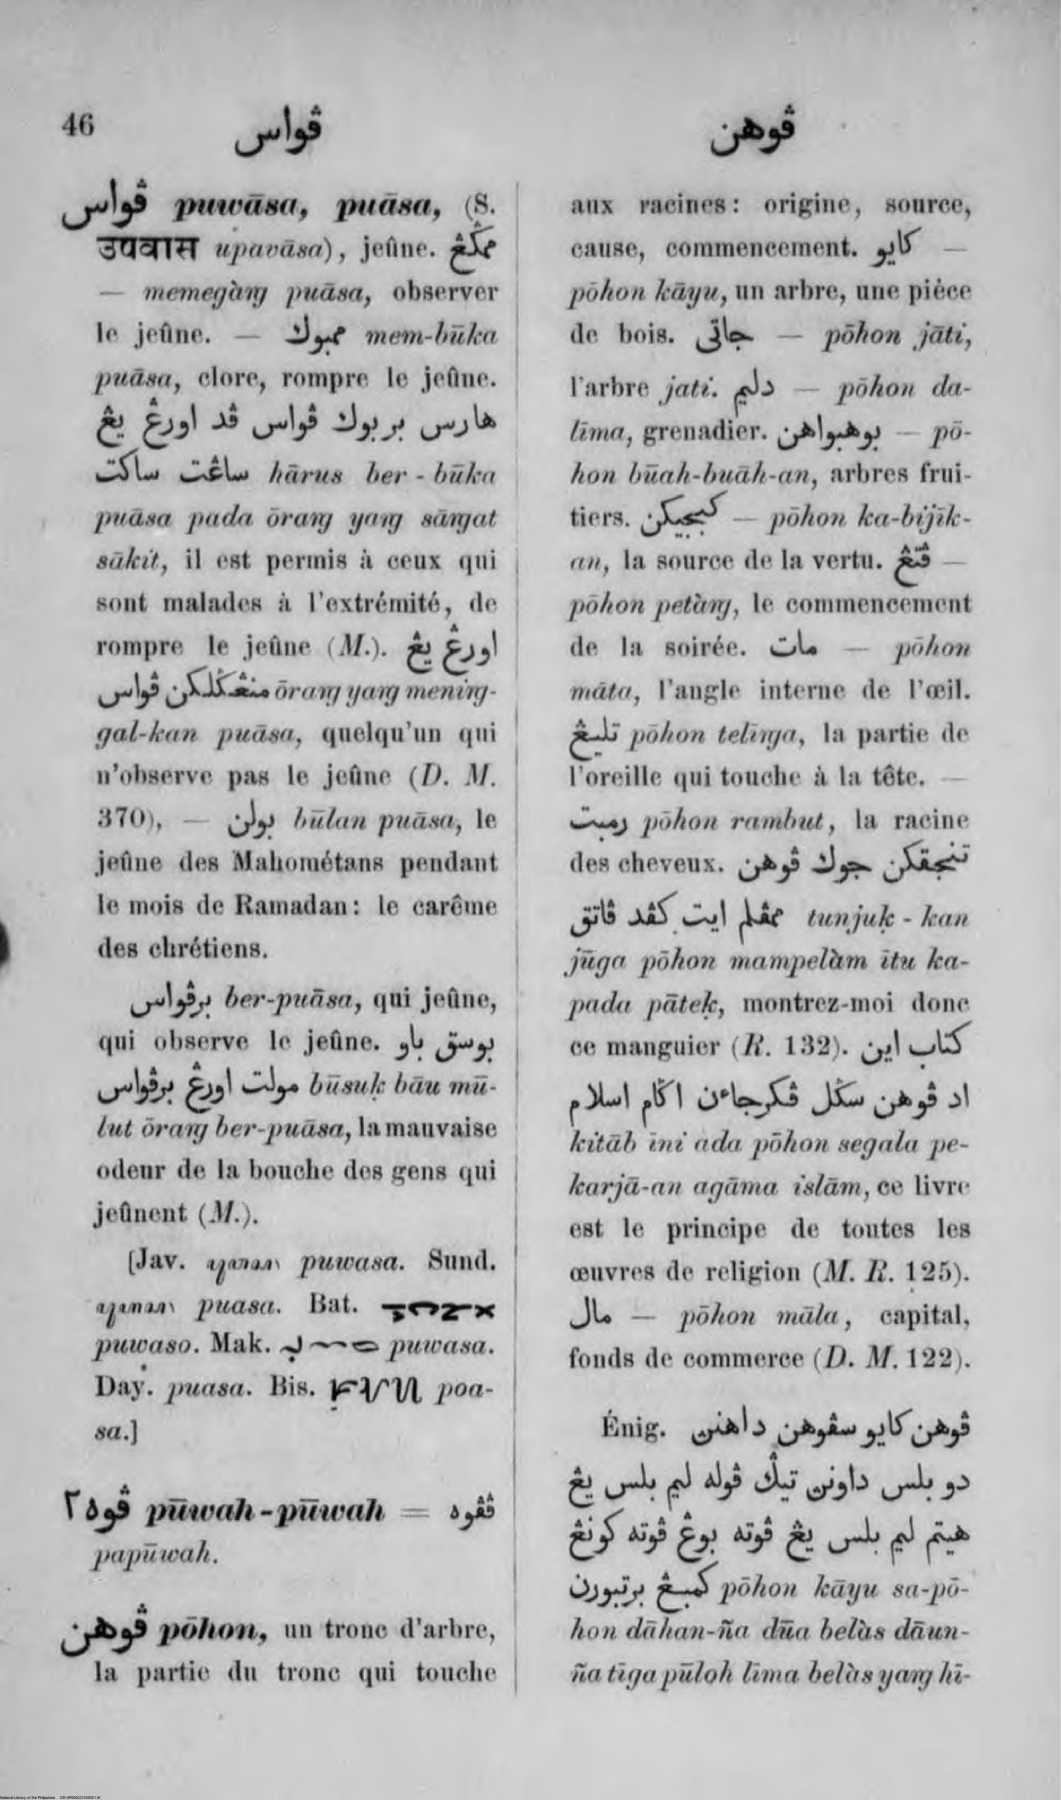 46
ڤواس
ڤوهن
ڤواس puwāsa, puāsa, (S.
उपवास upavāsa), jeûne. ممݢڠ
— memegàng puāsa, observer
le jeûne. — ممبوك mem-būka
puāsa, clore, rompre le jeûne.
هارس بربوك ڤواس ڤد اورڠ يڠ
ساڠت ساكت hārus ber - būka
puāsa pada ōrang yang sāngat
sākit, il est permis à ceux qui
sont malades à l'extrémité, de
rompre le jeûne (M.). اورڠ يڠ
منڠݢلكن ڤواس ōrang yang mening-
gal-kan puāsa, quelqu'un qui
n'observe pas le jeûne (D. M.
370), — بولن būlan puāsa, le
jeûne des Mahométans pendant
le mois de Ramadan: le carême
des chrétiens.
برڤواس ber-puāsa, qui jeûne,
qui observe le jeûne. بوسق باو
مولت اورڠ برڤواس būsuḳ bāu mū-
lut ōrang ber-puāsa, la mauvaise
odeur de la bouche des gens qui
jeûnent (M.).
[Jav. puwasa. Sund.
puasa. Bat.
puwaso. Mak. puwasa.
Day. puasa. Bis. poa-
sa.]
ڤوه٢ pūwah-pūwah = ڤڤوه
papūwah.
ڤوهن pōhon, un tronc d'arbre,
la partie du tronc qui touche
aux racines: origine, source,
cause, commencement. كايو —
pōhon kāyu, un arbre, une pièce
de bois. جاتي — pōhon jāti,
l'arbre jati. دليم — pōhon da-
līma, grenadier. بوهبواهن — pō-
hon būah-buāh-an, arbres frui-
tiers. كبجيكن — pōhon ka-bijīk-
an, la source de la vertu. ڤتڠ —
pōhon petàng, le commencement
de la soirée. مات — pōhon
māta, l'angle interne de l'œil.
تليڠ pōhon telīnga, la partie de
l'oreille qui touche à la tête. —
رمبت pōhon rambut, la racine
des cheveux. تنجقكن جوك ڤوهن
ممڤلم ايت كڤد ڤاتق tunjuḳ - kan
jūga pōhon mampelàm ītu ka-
pada pāteḳ, montrez-moi donc
ce manguier (R. 132). كتاب اين
اد ڤوهن سݢل ڤكرجاءن اݢام اسلام
kitāb īni ada pōhon segala pe-
karjā-an agāma islām, ce livre
est le principe de toutes les
œuvres de religion (M. R. 125).
مال — pōhon māla, capital,
fonds de commerce (D. M. 122).
Énig. ڤوهن كايو سڤوهن داهنن
دو بلس داونن تيݢ ڤوله ليم بلس يڠ
هيتم ليم بلس يڠ ڤوته بوڠ ڤوته كونڠ
كمبڠ برتبورن pōhon kāyu sa-pō-
hon dāhan-ña dūa belàs dāun-
ña tīga pūloh līma belàs yang hī-